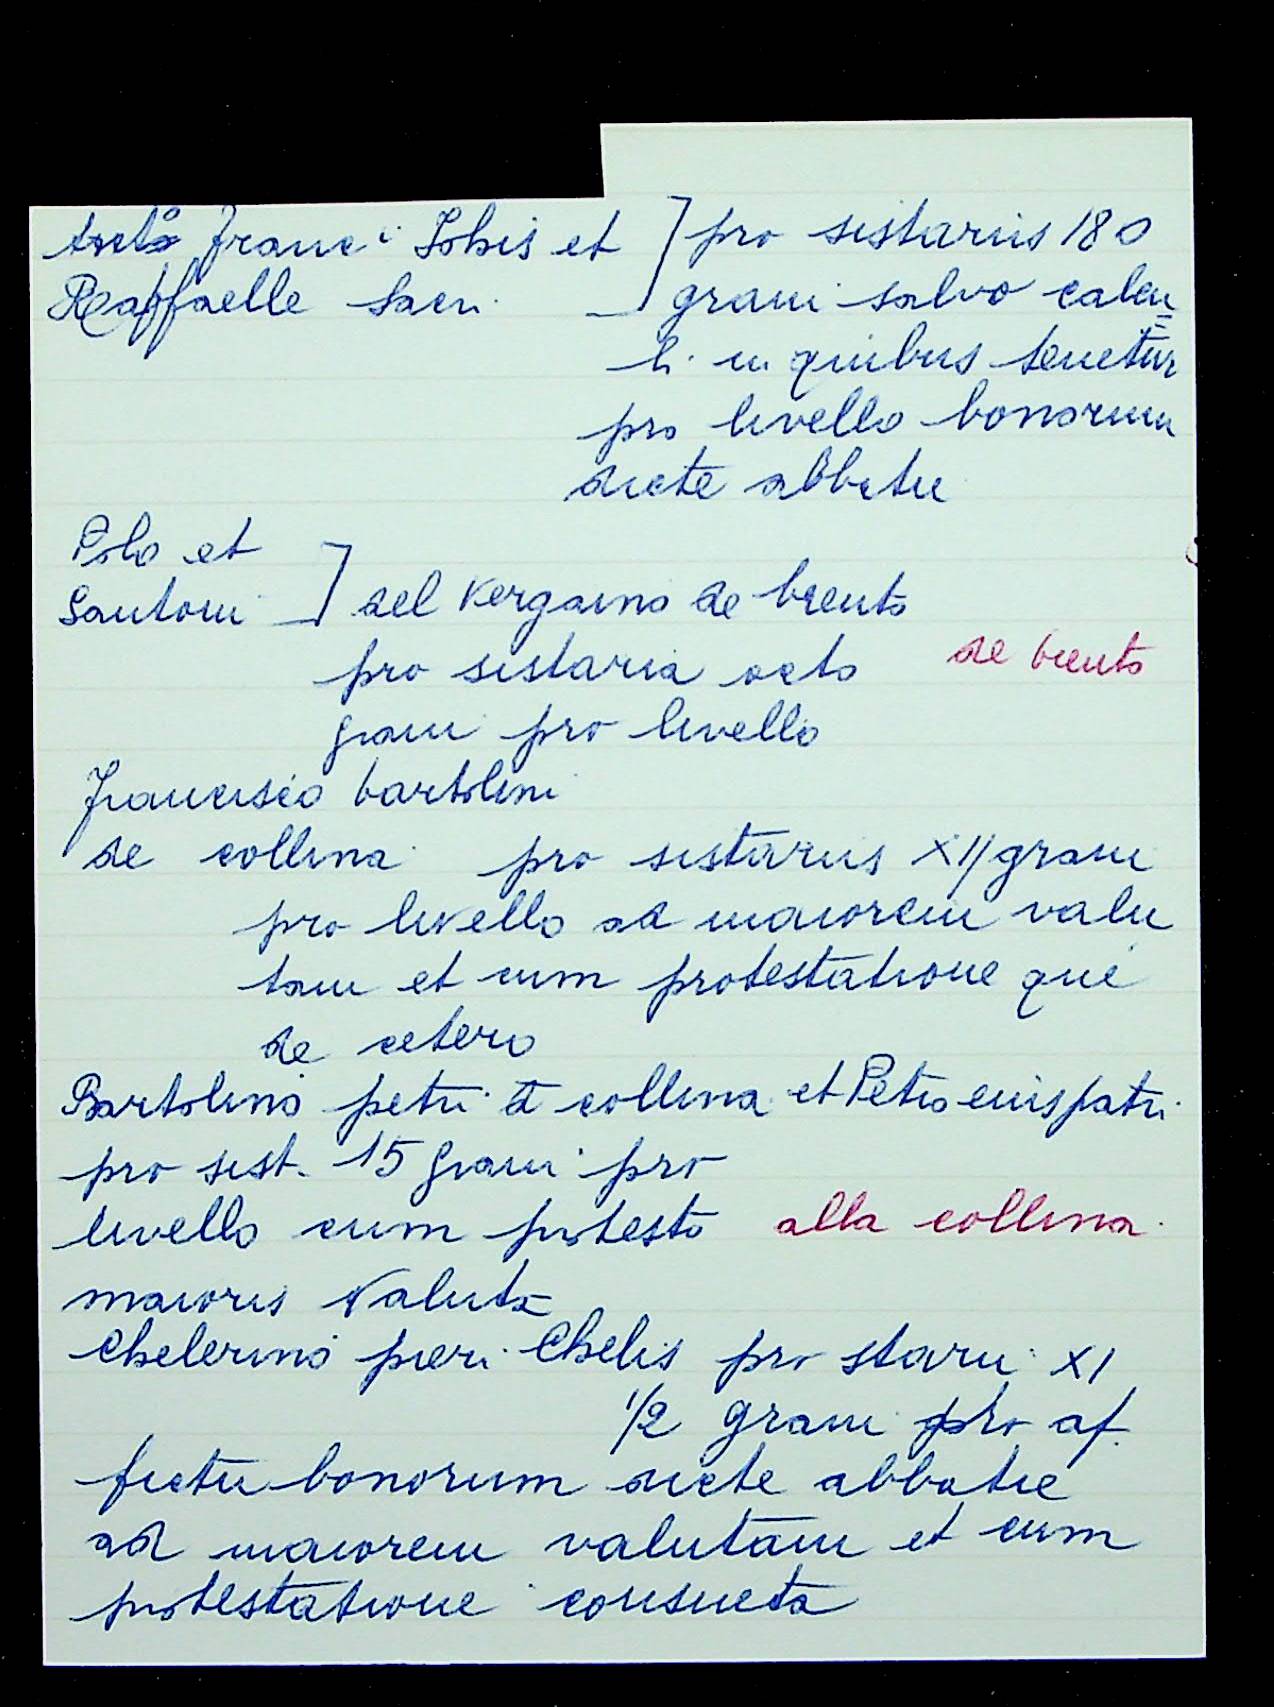 Franci Johis et ] pro sistariis 180
Raffaelle Saeri grani salvo calcu=
li in quibus tenetur
pro livello bonorum
dicte abbatie
Polo et
Santoni ] del vergamo de brento
pro sistaria octo de brento
grani pro livello
Francischo bartolini
de collina pro sistariis XII grani
pro livello ad maiorem valu
tam et cum protestatione que
de cetero
Bartolino petri d collina et Petro eius patri
pro sist. 15 grani pro
livello cum protesto alla collina
maioris valute
Chelerino pieri Chelis pro starii XI
1/2 grani pro af.
fictu bonorum dicte abbatie
ad maiorem valutam et cum
protestatione consueta